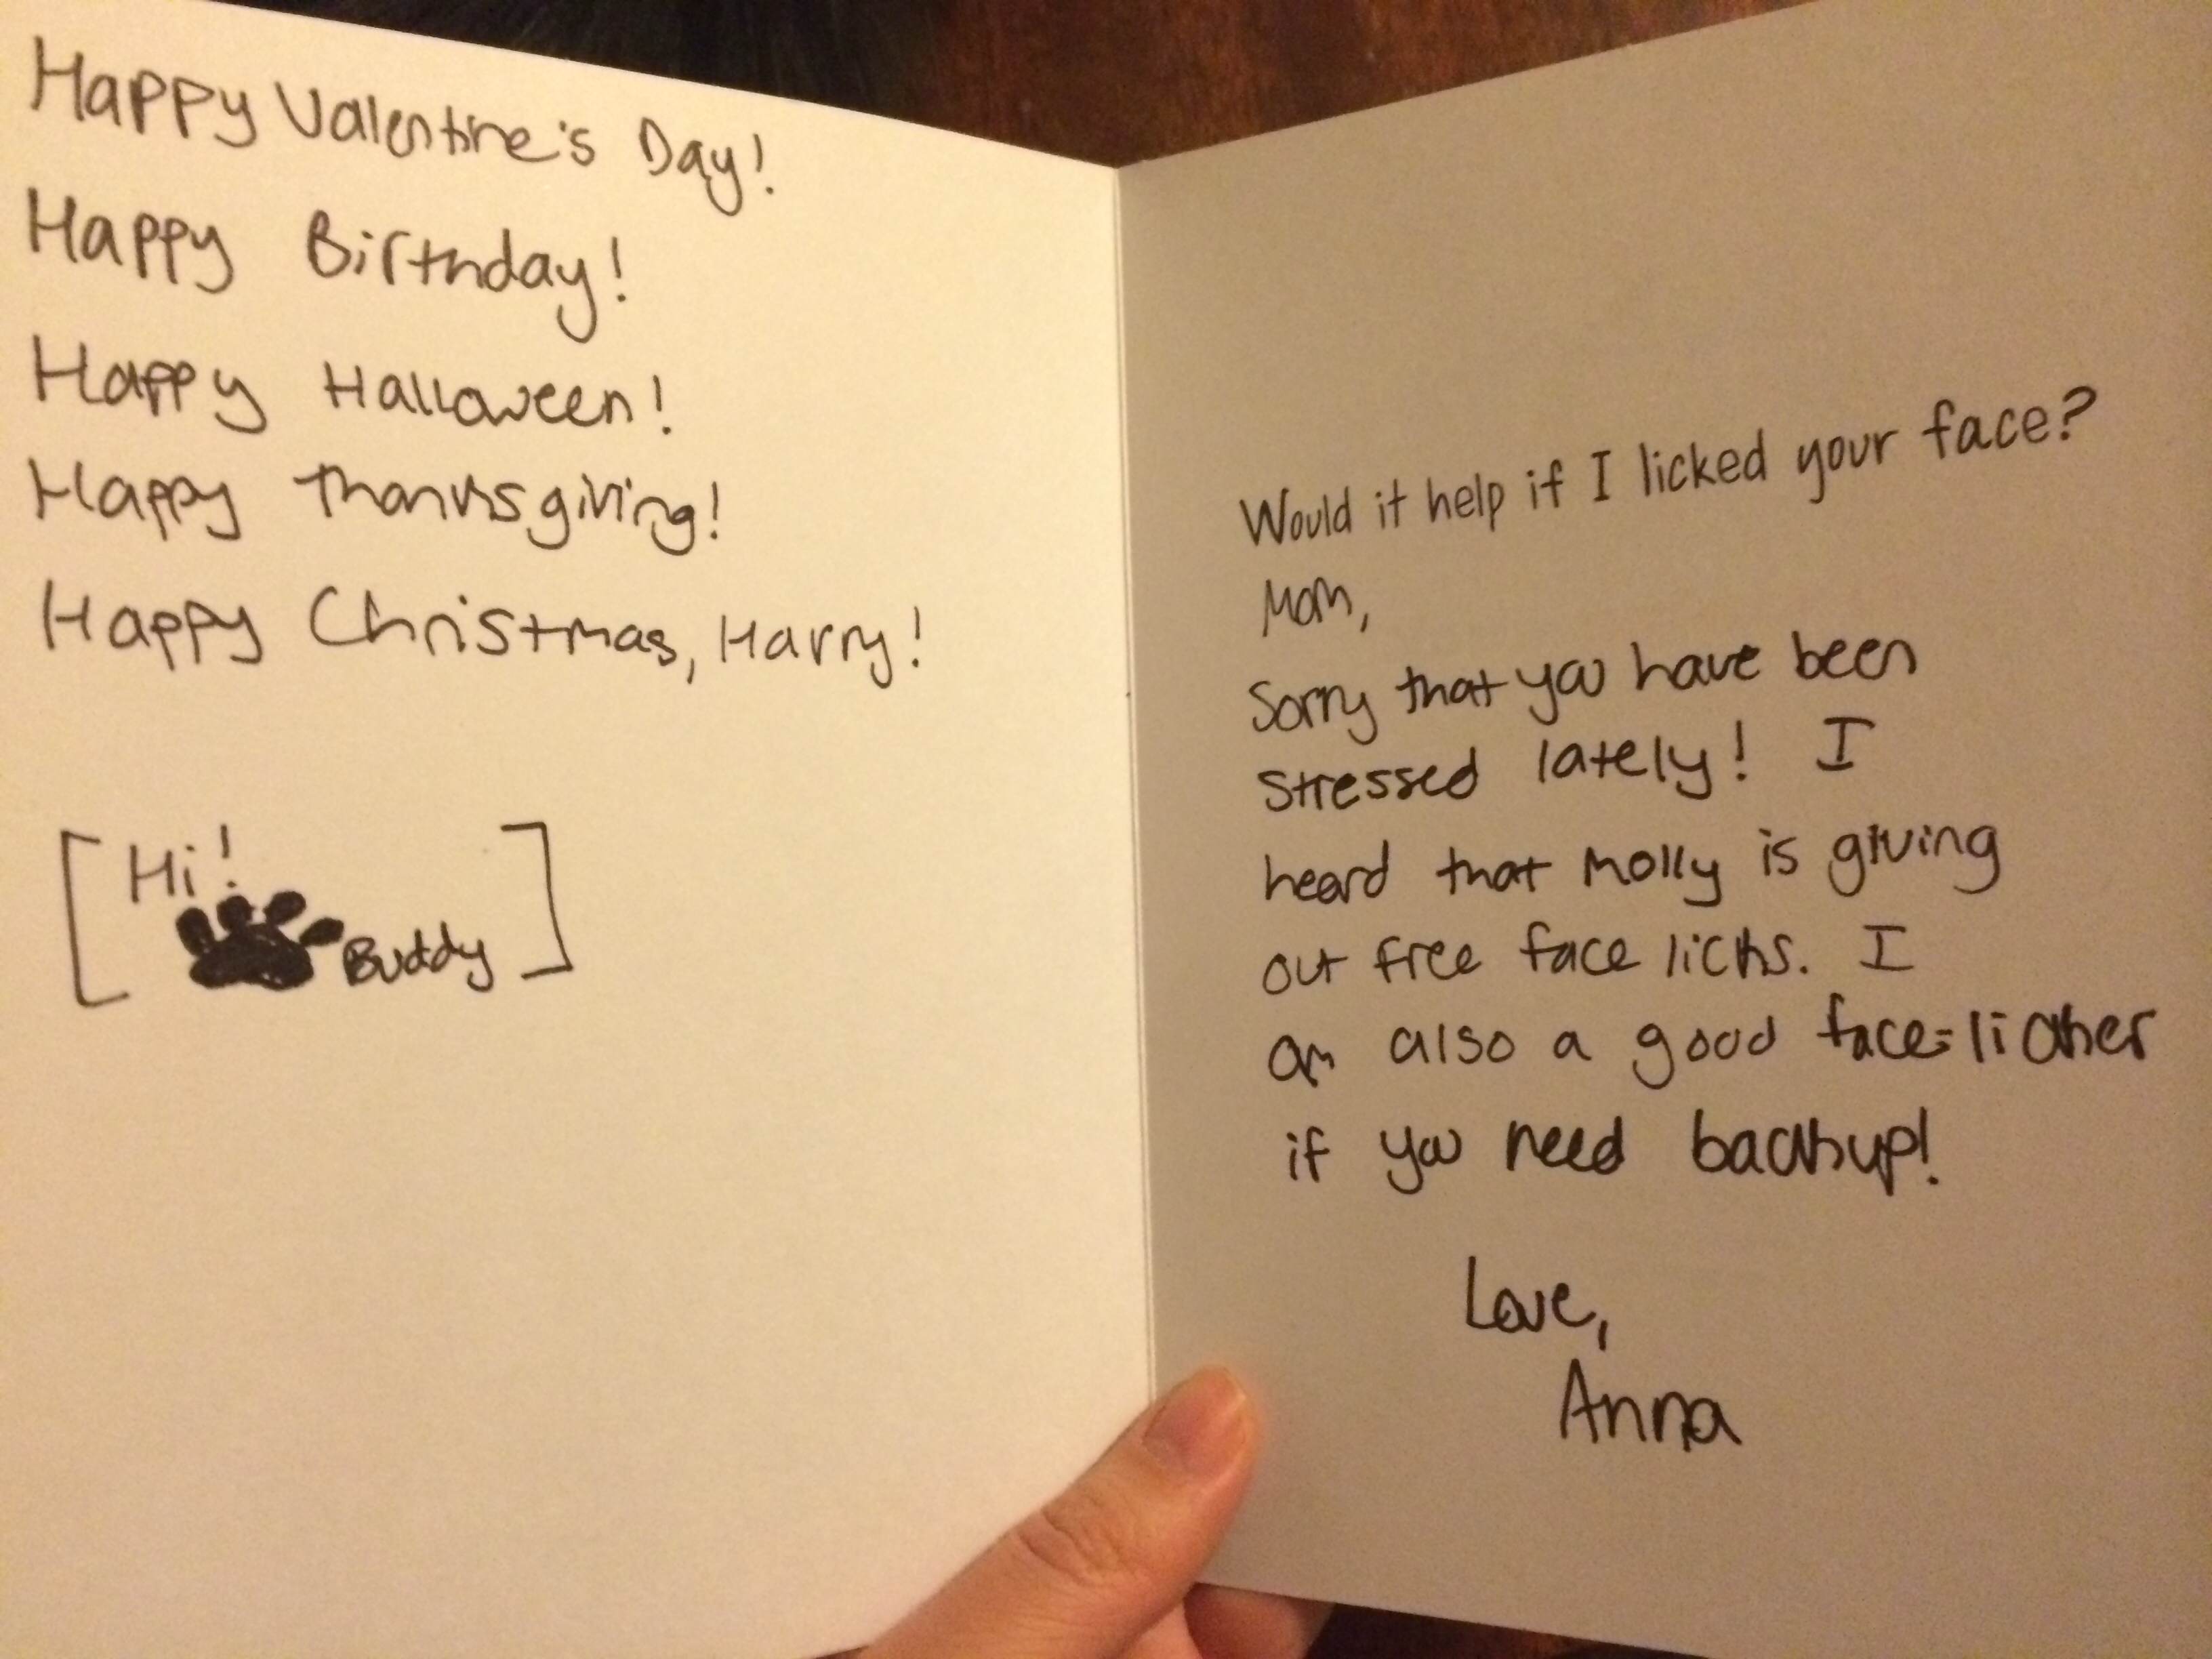 Happy Valentine's Day!
Happy Birthday!
Happy Halloween!
Happy Thanksgiving!
Happy Christmas, Harry!
[Hi!
Buddy]
Would it help if I licked your face?
Mom,
Sorry that you have been
stressed lately! I
heard that Molly is giving
out free face licks. I
am also a good face-licker
if you need backup!
Love,
Anna